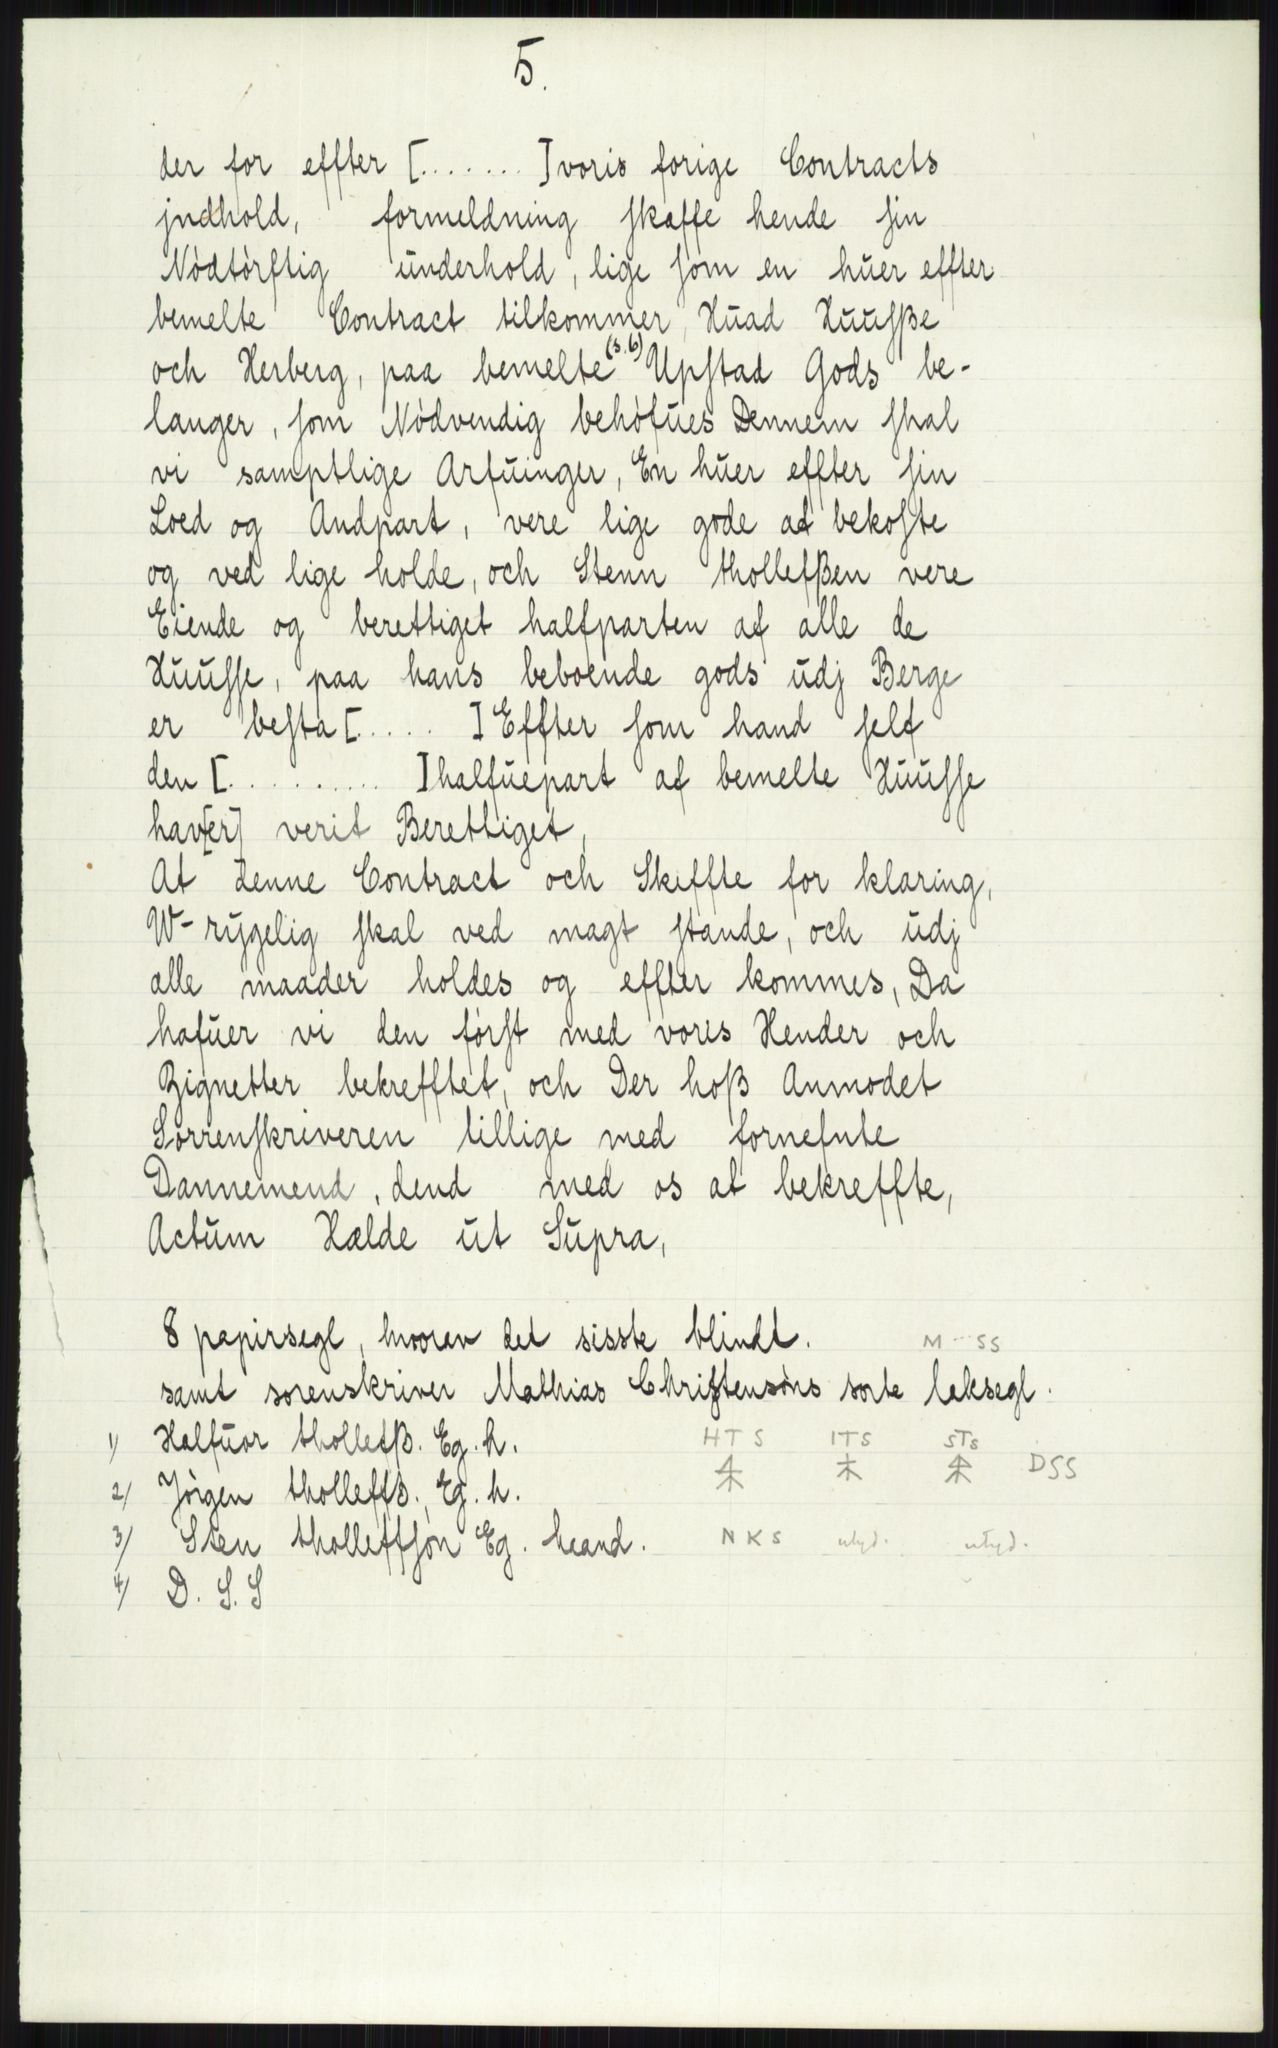 5.
der for effter [.......] voris forige Contracts
jndhold, formeldning skaffe hende sin
Nödtörftig ünderhold, lige som en hüer effter
bemelte Contract tilkommer, Hüad Huusße
och Herberg, paa bemelte (s. 6) Upstad Gods be-
langer, som Nödvendig behöfües Dennem skal
vi samptlige Arfüinger, En hüer effter sin
Loed og Andpart, vere lige gode at bekoste
og ved lige holde, och Stenn thollefßen vere
Eiende og berettiget halfparten af alle de
Huusse, paa hans beboende gods üdj Berge
er besta [.....] Effter som hand self
den [..........] halfüepart af bemelte Huusse
hav[er] verit Berettiget,
At denne Contract och Skiffte for klaring,
W-rygelig skal ved magt stande, och üdj
alle maader holdes og effter kommes, Da
hafüer vi den först med voris Hender och
Zignetter bekrefftet, och Der hoß Anmodet
Sorrenskriveren tillige med fornefnte
Dannemend, dend med os at bekreffte,
Actüm Hælde üt Süpra,
8 papirsegl, hvorav det sisste blindt. M SS
samt sorenskriver Mathias Christensöns sorte laksegl.
1) Halfüor thollefß. Eg. h. HTS ITS STS DSS
2) Jörgen tholleffß., Eg. h.
3) Sten tholleffsön Eg. haand. NKS utyd. utyd.
4) D. S. S